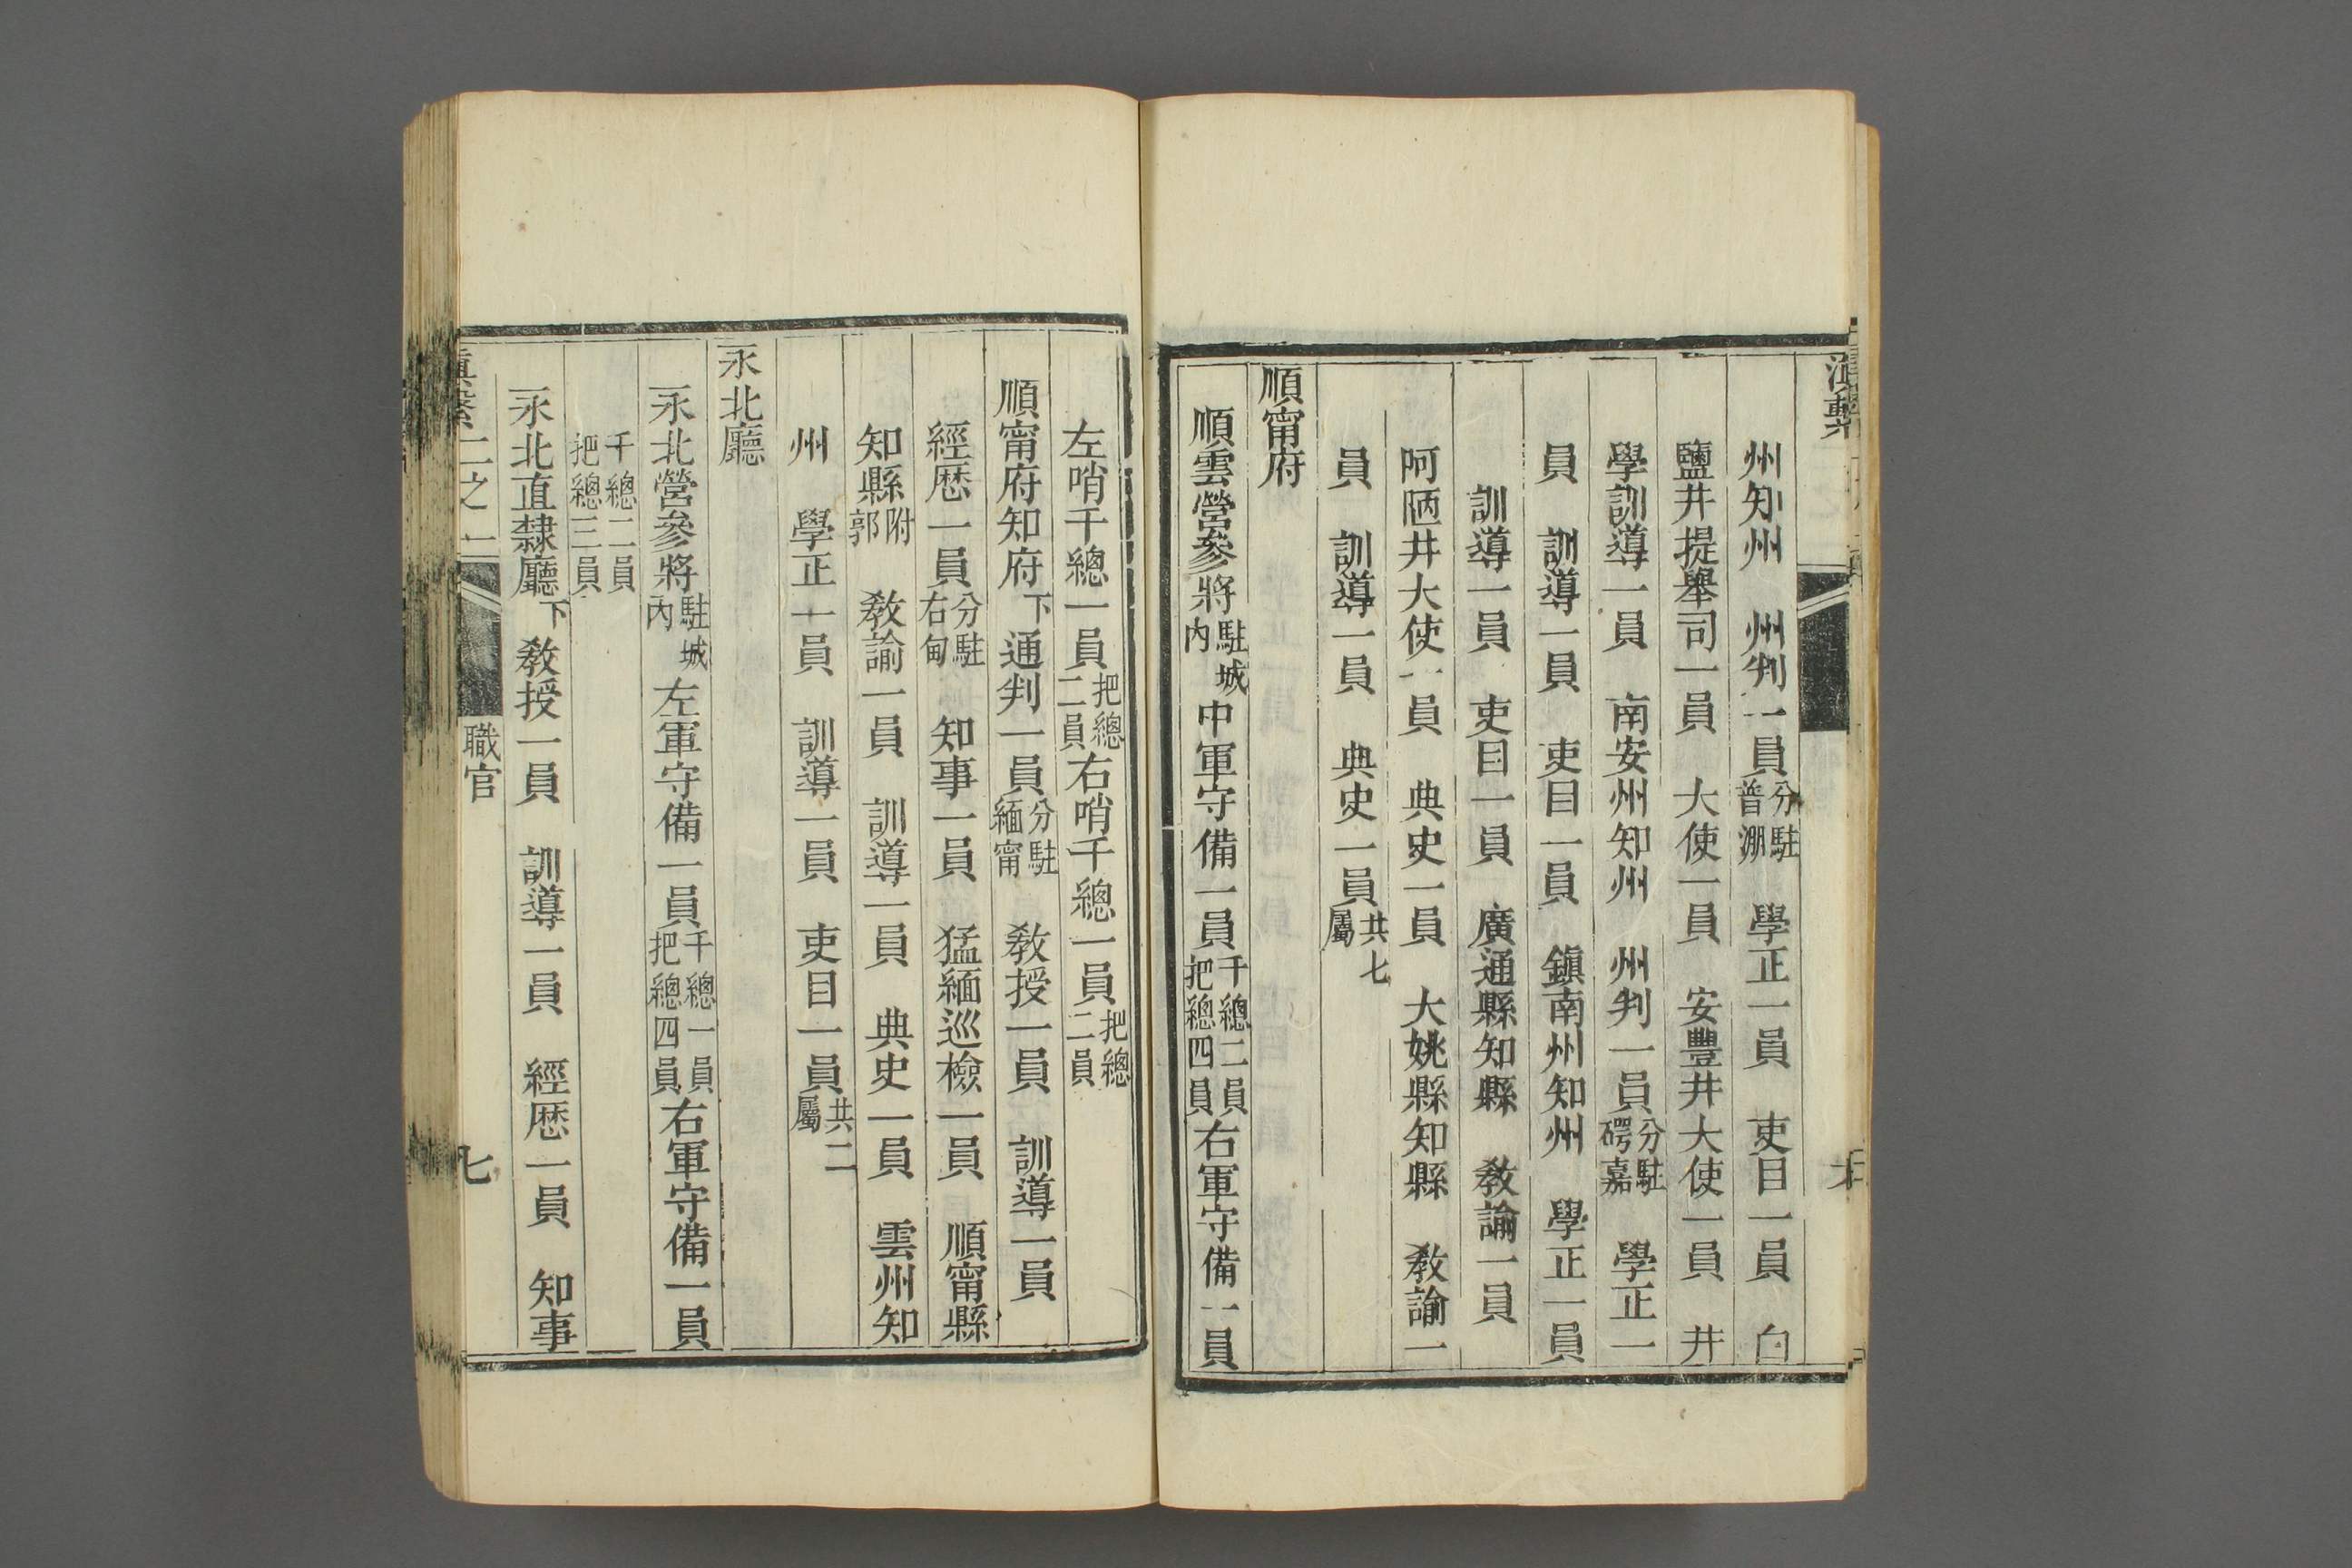 滇繫
州知州　州判一員分駐普淜　學正一員　吏目一員　白
鹽井提舉司一員　大使一員　安豐井大使一員　井
學訓導一員　南安州知州　州判一員分駐碍嘉　學正一
員　訓導一員　吏目一員　鎮南州知州　學正一員
訓導一員　吏目一員　廣通縣知縣　教諭一員
阿陋井大使一員　典史一員　大姚縣知縣　教諭一
員　訓導一員　典史一員共七屬
順甯府
順雲營參將駐城內中軍守備一員千總二員把總四員右軍守備一員
左哨千總一員把總二員右哨千總一員把總二員
順甯府知府下通判一員分駐緬甯　教授一員　訓導一員
經歷一員分駐右甸　知事一員　猛緬巡檢一員　順甯縣
知縣附郭　教諭一員　訓導一員　典史一員　雲州知
州　學正一員　訓導一員　吏目一員共二屬
永北廳
永北營參將駐城內左軍守備一員千總一員把總四員右軍守備一員
千總二員把總三員
永北直隸廳下教授一員　訓導一員　經歷一員　知事
滇繫二之一　職官　七